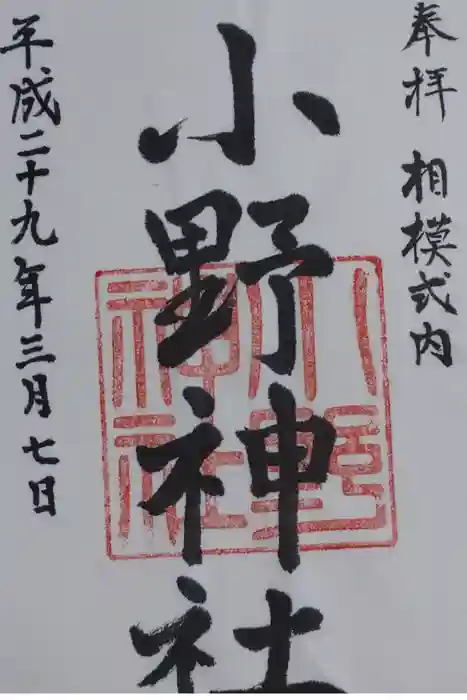 奉拝 相模式内
小野神社
平成二十九年三月七日
小野
神社